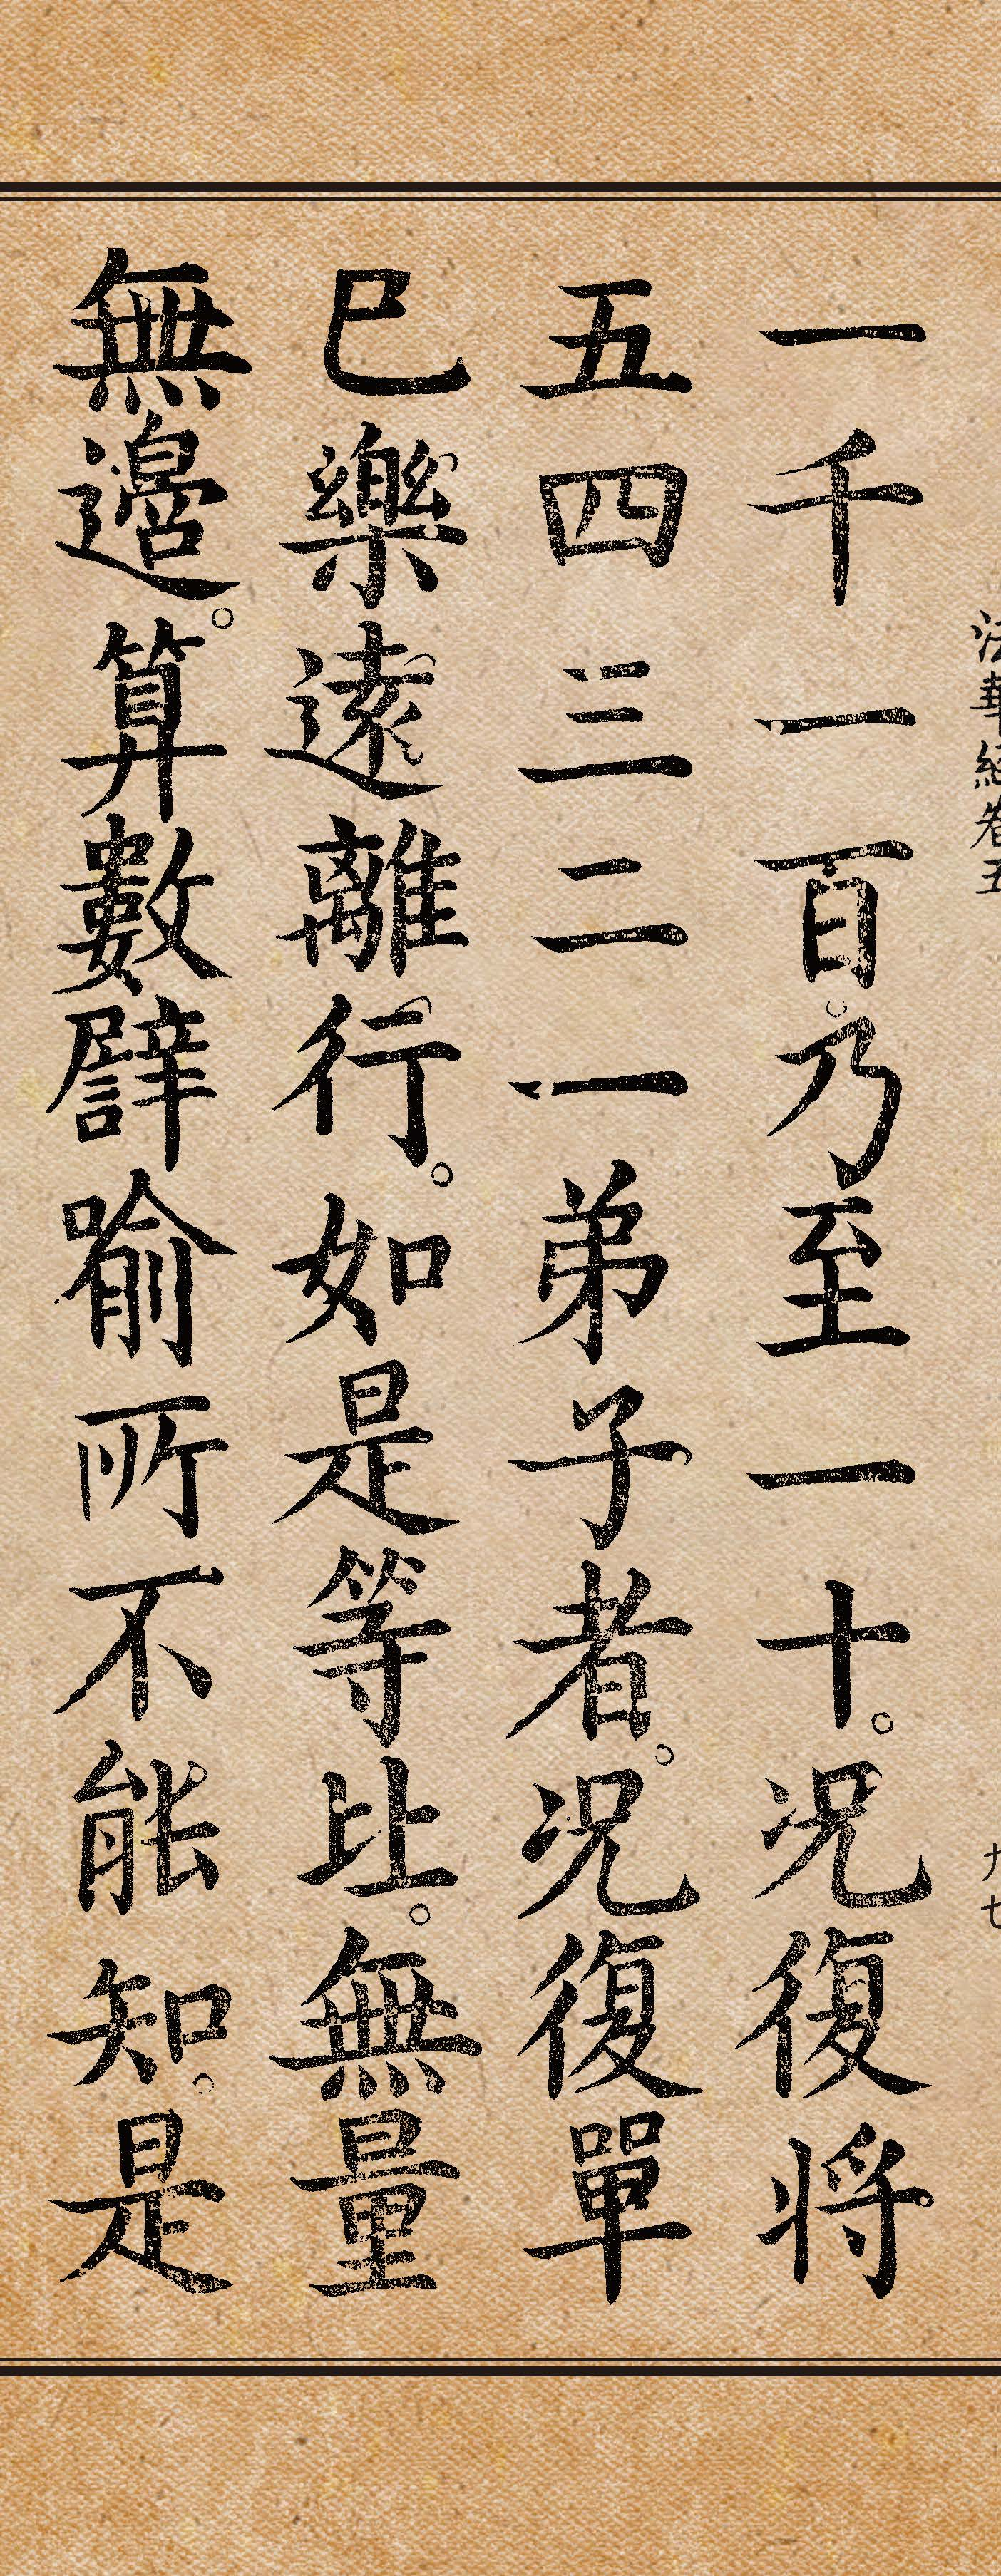 法華經卷五
九七
一千一百。乃至一十。况復将
五四三二一弟子者。况復單
已樂遠離行。如是等比。無量
無邊。算數譬喻所不能知。是